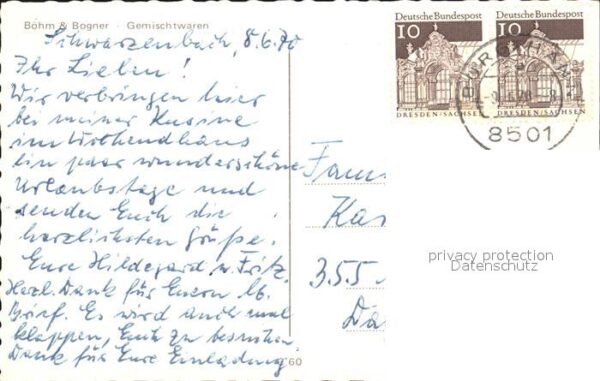 Böhm & Bogner · Gemischtwaren
Schwarzenbach, 8.6.70
Ihr Lieben!
Wir verbringen hier
bei meiner Kusine
im Wochendhaus
ein paar wunderschöne
Urlaubstage und
senden Euch die
herzlichsten Grüße.
Eure Hildegard u. Fritz.
Herzl. Dank für Euern lb.
Brief. Es wird auch mal
klappen, Euch zu besuchen.
Dank für Eure Einladung!
Deutsche Bundespost
10
DRESDEN/SACHSEN
Deutsche Bundespost
10
DRESDEN/SACHSEN
8501
Fam
Kas
355
privacy protection
Datenschutz
60